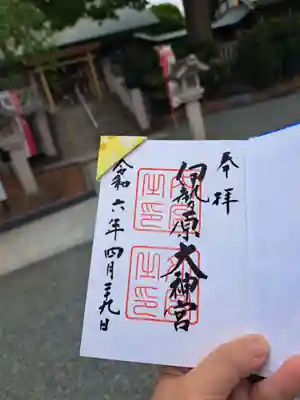 奉拝
伊勢原大神宮
令和六年四月二十九日